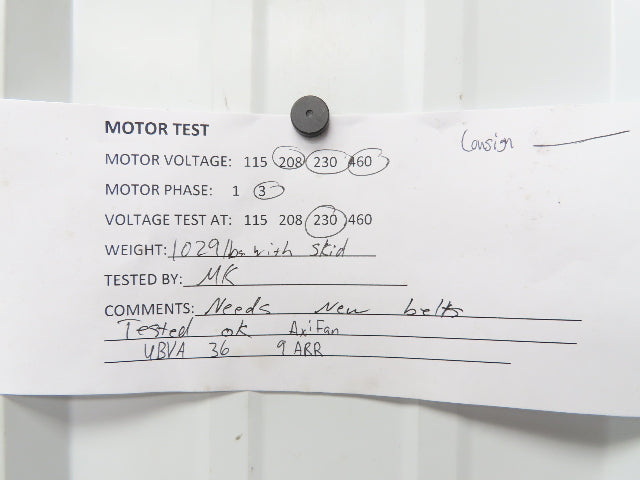 MOTOR TEST
Consign
MOTOR VOLTAGE: 115 208 230 460
MOTOR PHASE: 1 3
VOLTAGE TEST AT: 115 208 230 460
WEIGHT: 1029 lbs with skid
TESTED BY: MK
COMMENTS: Needs New belts
Tested ok AxiFan
UBVA 36 9 ARR